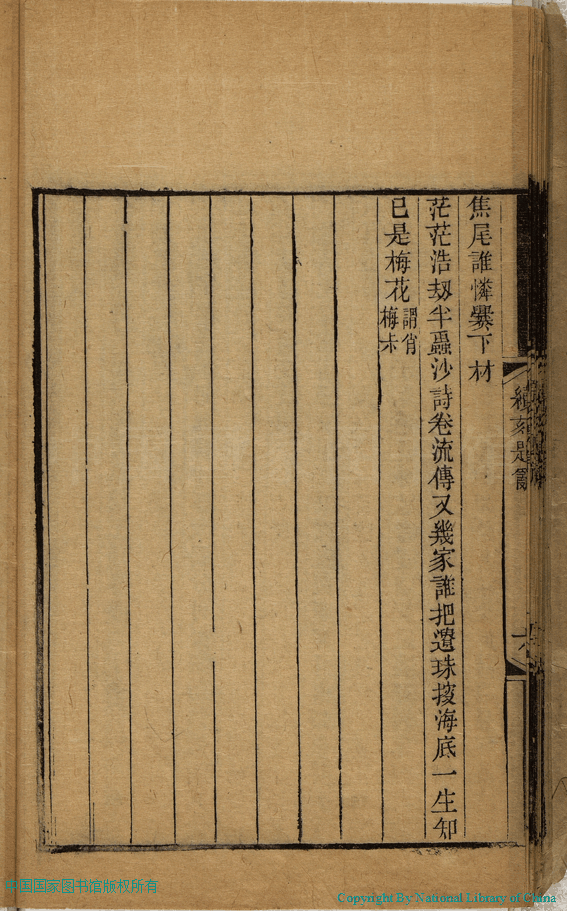 焦尾誰憐爨下材
茫茫浩刼半蟲沙詩卷流傳又幾家誰把遺珠搜海底一生知
已是梅花謂肖
梅朱
續刻是
六
中国国家图书馆版权所有
Copyright By National Library of China